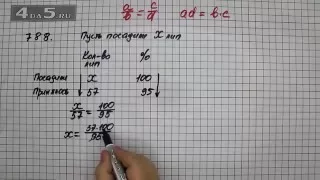 4DA5.RU
a/b = c/d ad = b·c
788. Пусть посадили X лип
Кол-во лип %
Посадили X 100
Принялось 57 95
x/57 = 100/95
x = 57·100/95